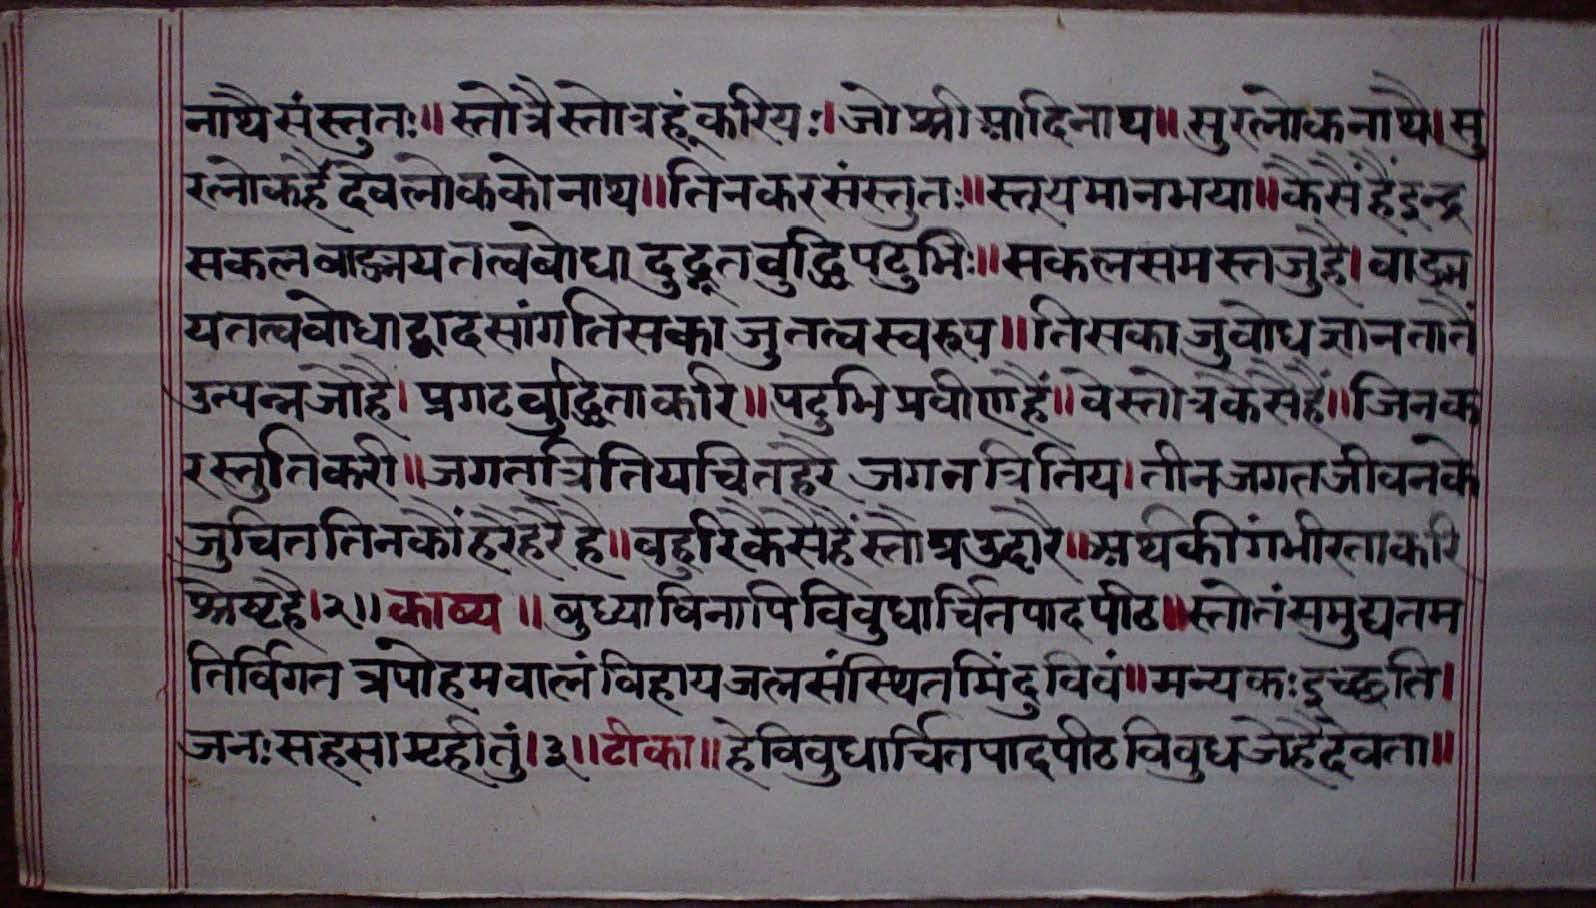 नाथै संस्तुतः॥ स्तोत्रै स्तोत्र हूं करियः। जो श्री आदिनाथ॥ सुरलोकनाथै। सु
रलोक हैं देवलोक को नाथ॥ तिनकर संस्तुतः॥ स्तूयमान भया॥ कैसैं हैं इन्द्र
सकल वाङ्मय तत्व वोधा दुद्भूत वुद्धि पटुभिः॥ सकल समस्त जु है। वाङ्म
य तत्व वोधा द्वादसांग तिसका जु तत्व स्वरूप॥ तिसका जु वोध ज्ञान तातैं
उत्पन्न जो है। प्रगट वुद्धि ताकरि॥ पटुभि प्रवीण हैं॥ वे स्तोत्र कैसे हैं॥ जिनक
र स्तुति करी॥ जगतत्रितिय चित हरै जगत त्रितिय। तीन जगत जीवन के
जु चित तिनकौं हरै हरै है॥ वहुरि कैसे हैं स्तोत्र उदारै॥ अर्थ की गंभीरता करि
श्रेष्ट है।२॥ काव्य॥ वुध्या विनापि विवुधार्चित पादपीठ॥ स्तोतं समुद्यत म
तिर्विगत त्रपोहम वालं विहाय जल संस्थित मिंदु विवं॥ मन्य कः इच्छति।
जनः सहसा ग्रहीतुं।३॥ टीका॥ हे विवुधार्चित पादपीठ विवुध जे है देवता॥